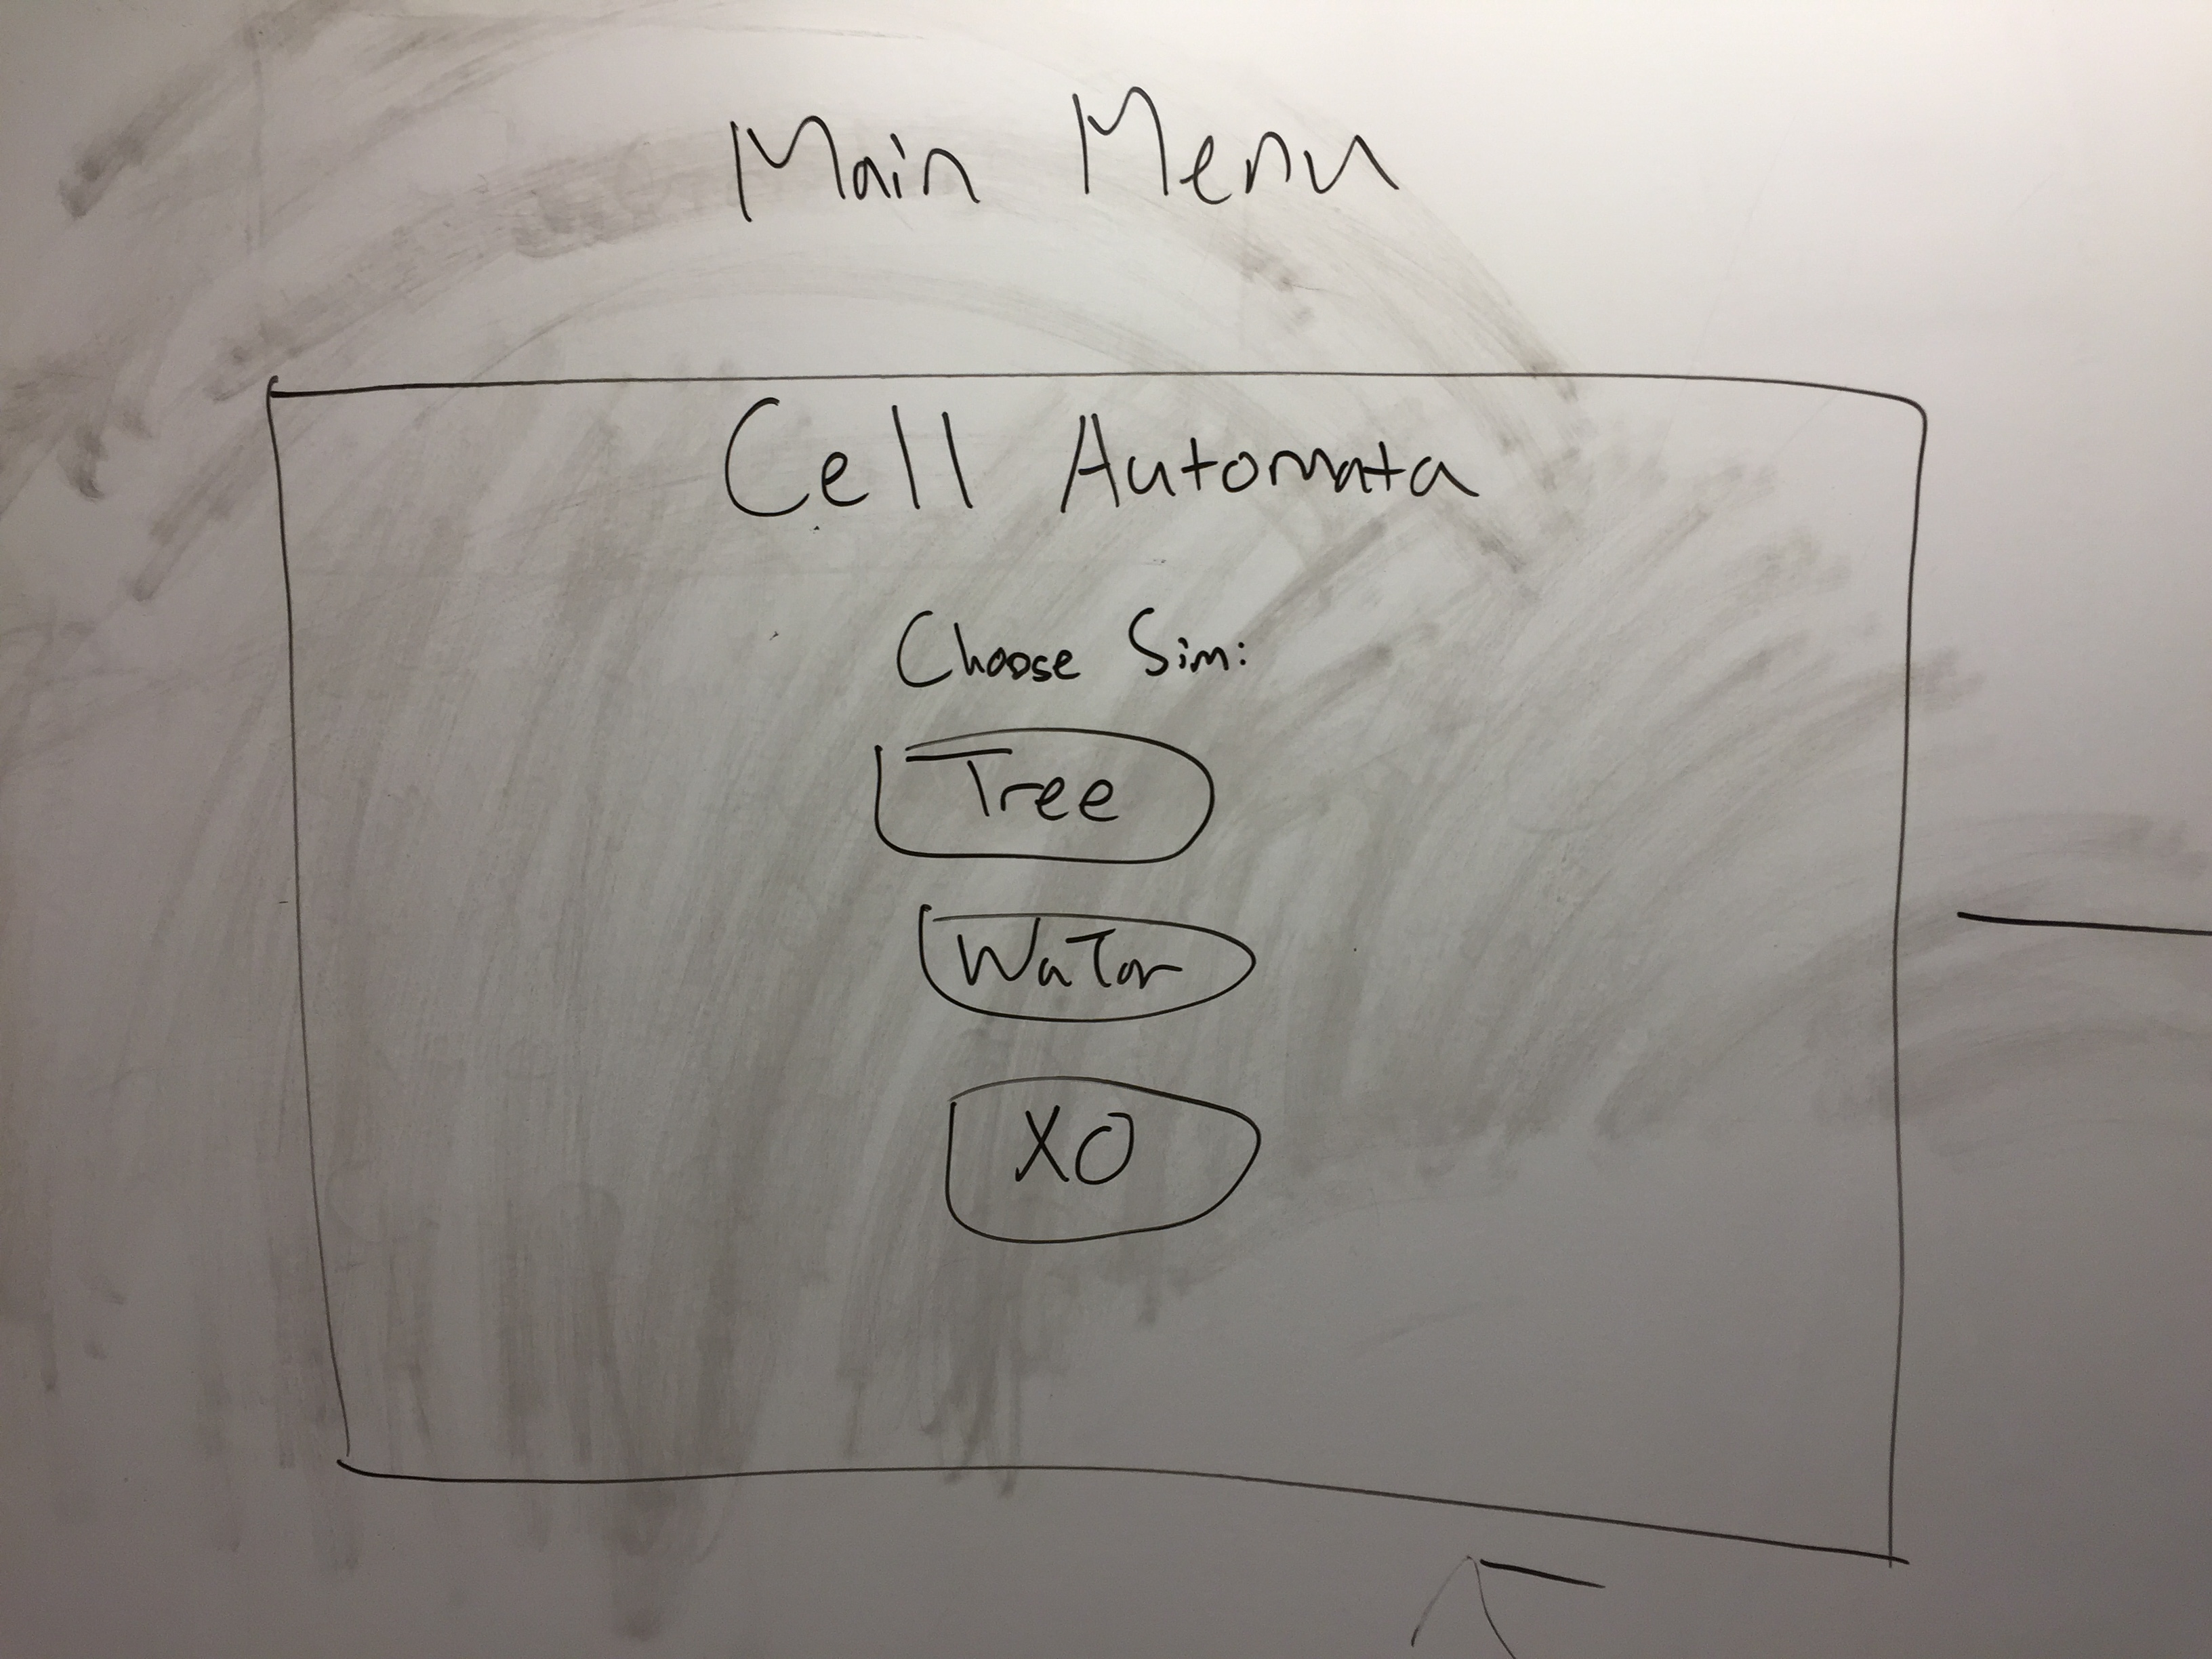 Main Menu
Cell Automata
Choose Sim:
Tree
WaTor
XO